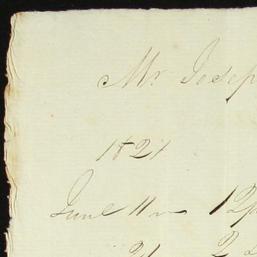 Mr. Josep
1821
June 11 12p
21 2